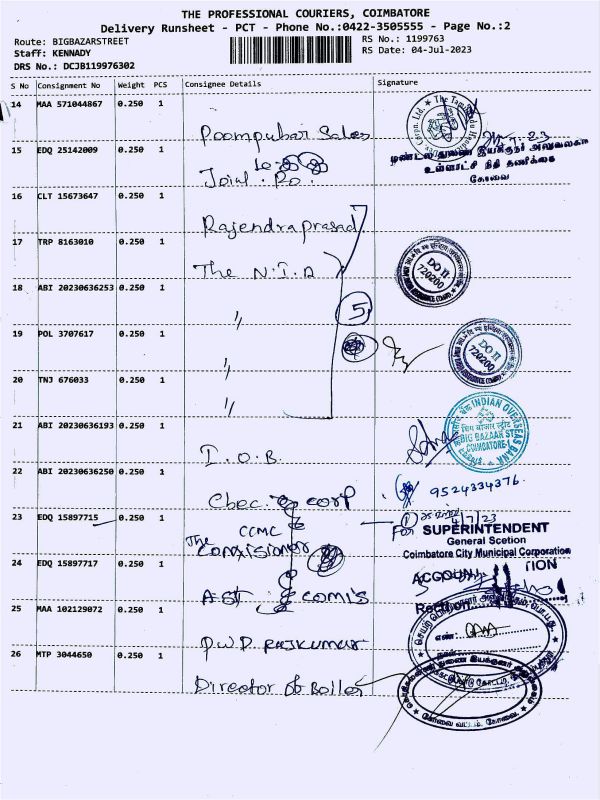 THE PROFESSIONAL COURIERS, COIMBATORE
Delivery Runsheet - PCT - Phone No.:0422-3505555 - Page No.:2
Route: BIGBAZARSTREET
RS No.: 1199763
Staff: KENNADY
RS Date: 04-Jul-2023
DRS No.: DCJB119976302
S No Consignment No Weight PCS Consignee Details Signature
14 MAA 571044867 0.250 1
Poompuhar Sales
15 EDQ 25142009 0.250 1
உள்ளாட்சி நிதி தணிக்கை
கோவை
16 CLT 15673647 0.250 1
Rajendraprasad
17 TRP 8163010 0.250 1
The N.I.A
DO II
720200
18 ABI 20230636253 0.250 1
"
5
19 POL 3707617 0.250 1
"
DO II
720200
20 TNJ 676033 0.250 1
"
21 ABI 20230636193 0.250 1
I.O.B.
INDIAN OVERSEAS BANK
BIG BAZAAR ST
COIMBATORE
22 ABI 20230636250 0.250 1
corp
9524334376
23 EDQ 15897715 0.250 1
CCMC
The
4/7/23
For SUPERINTENDENT
General Scetion
Coimbatore City Municipal Corporation
24 EDQ 15897717 0.250 1
ACCOUN TION
25 MAA 102129072 0.250 1
P.W.D. RAJKUMAR
எண்:
26 MTP 3044650 0.250 1
Director of Boiler
கோவை வட்டம், கோவை.